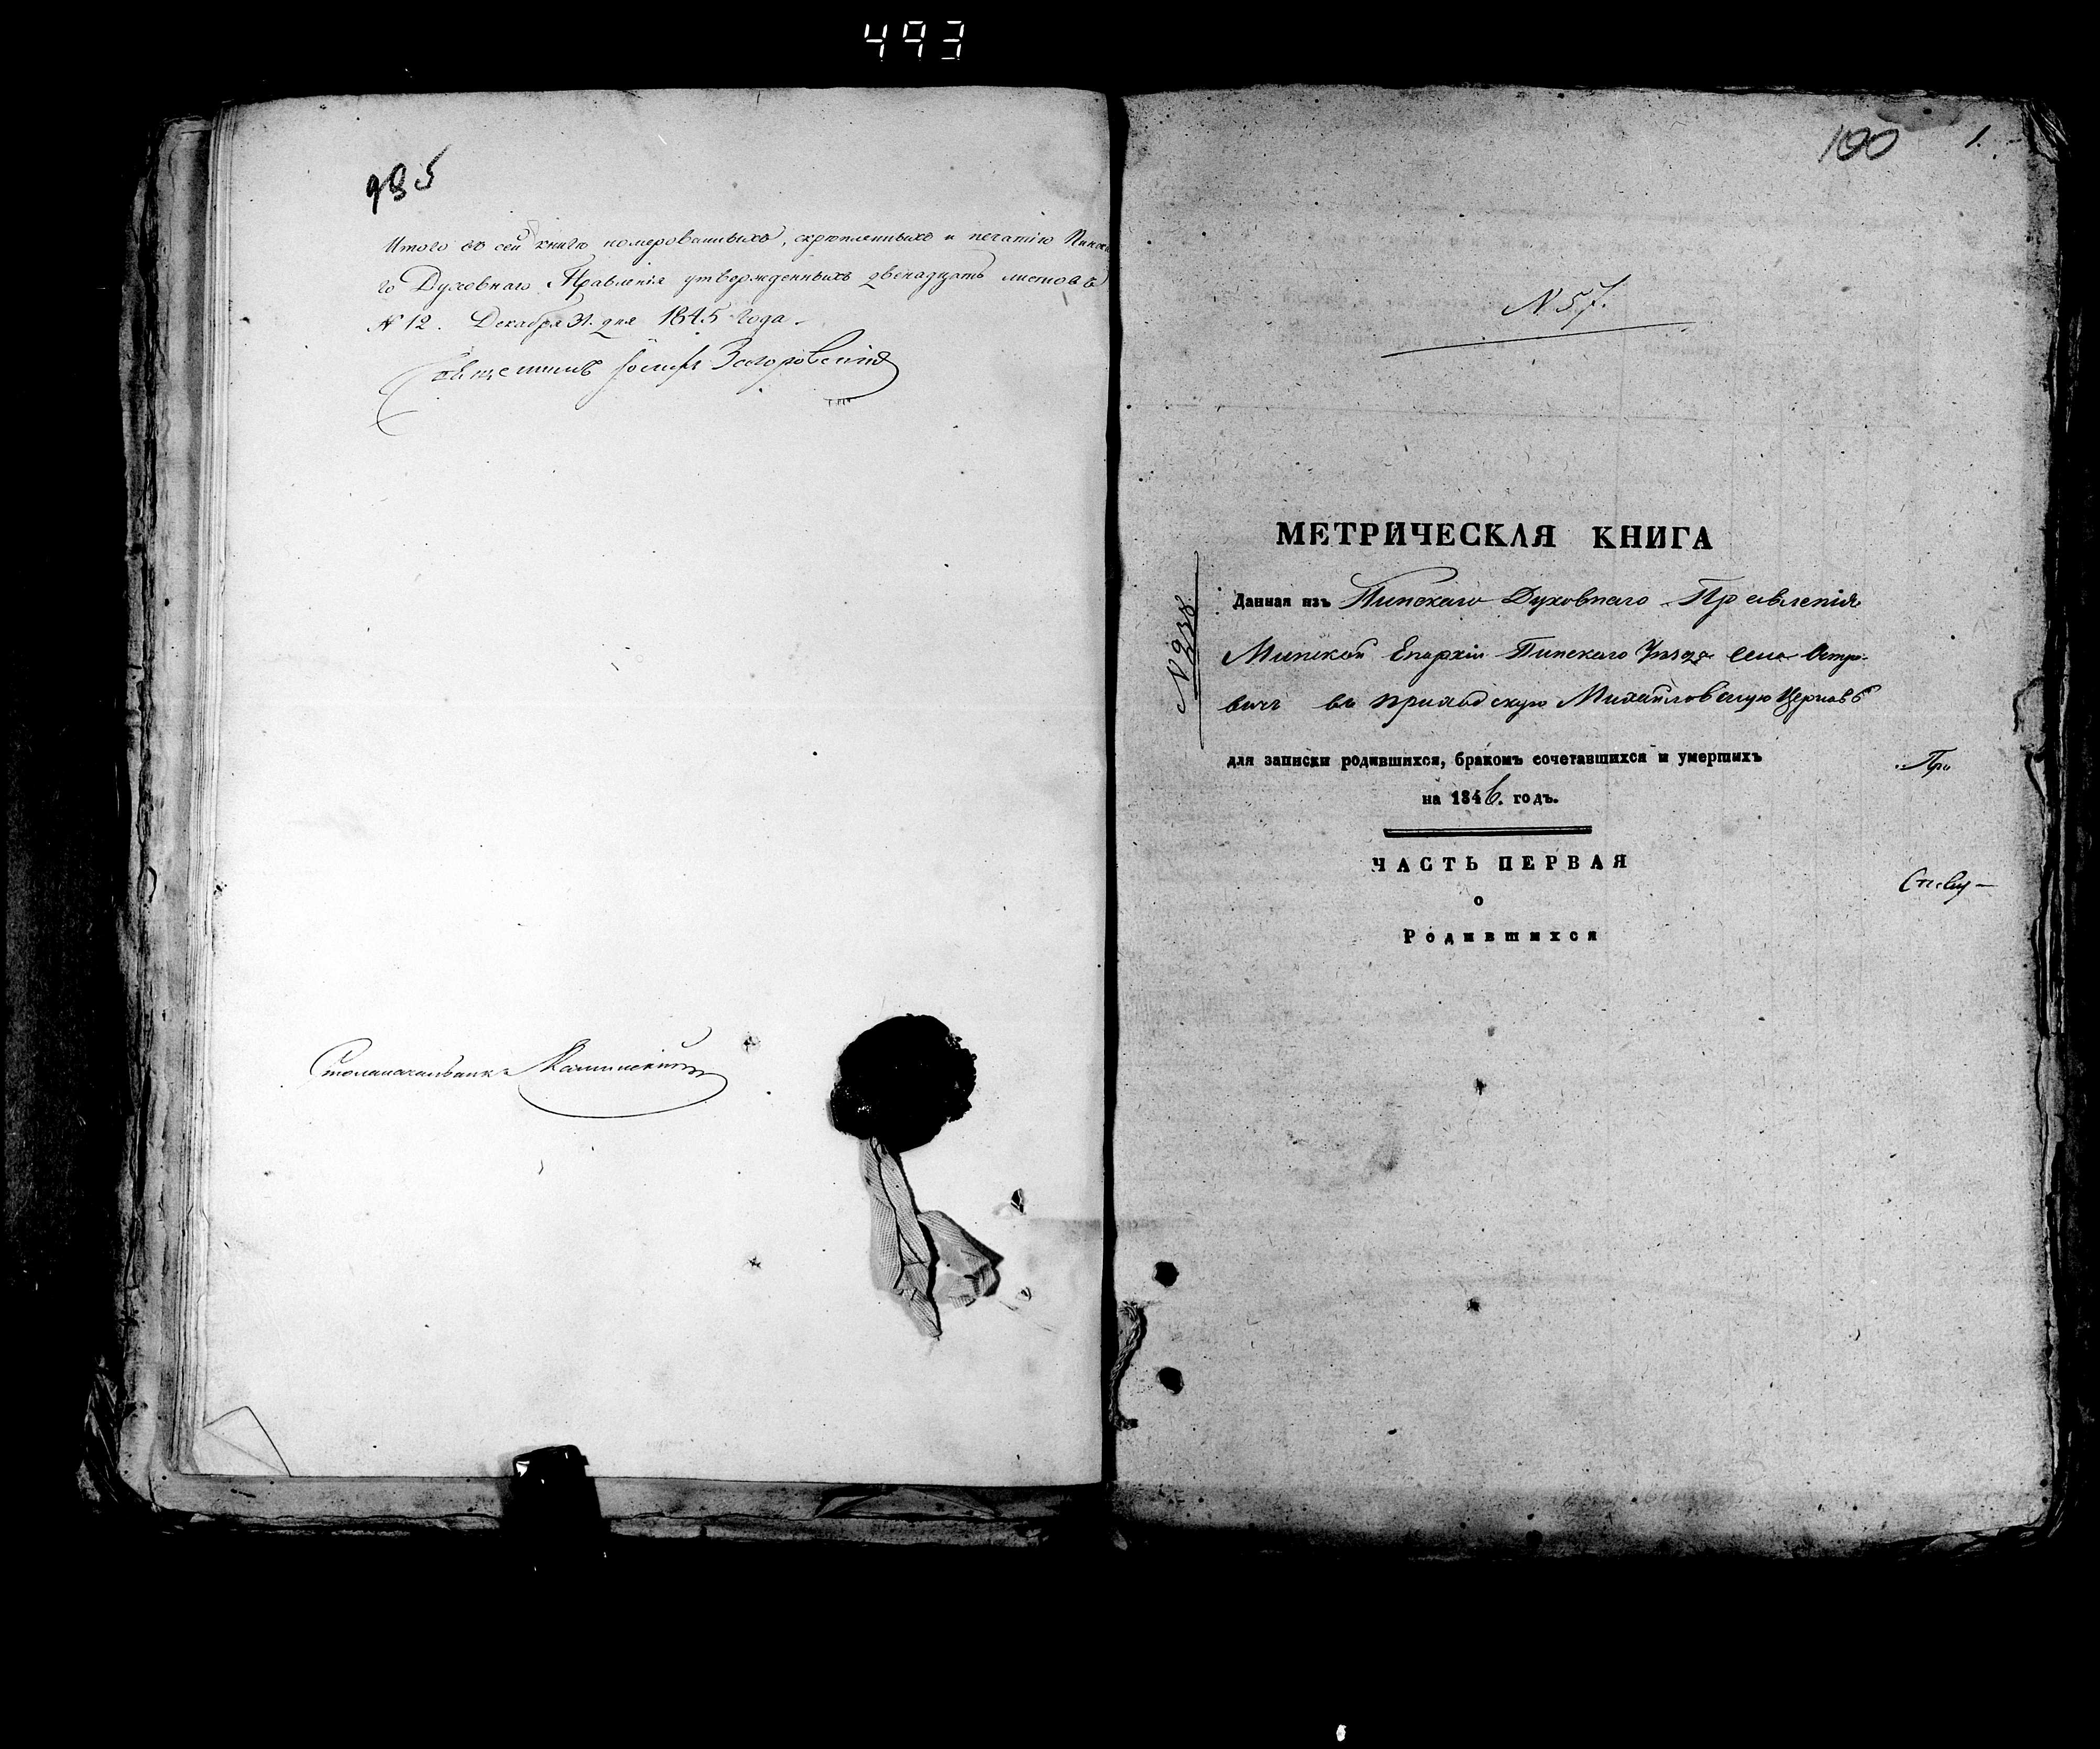 493
985
Итого въ сей книгѣ номерованныхъ, скрѣпленныхъ и печатію Пинска
го Духовнаго Правленія утвержденныхъ двенадцать листовъ
№ 12. Декабря 31. дня 1845 Года.
Священникъ Іосифъ
Столоначальникъ
190 1.
N 57.
МЕТРИЧЕСКАЯ КНИГА
Данная изъ Пинскаго Духовнаго Правленія
Минской Епархіи Пинскаго Уѣзда села Остро-
вичъ въ приходскую Михайловскую Церковь
N 238
для записки родившихся, бракомъ сочетавшихся и умершихъ
на 1846. годъ.
ЧАСТЬ ПЕРВАЯ
о
Родившихся
Про